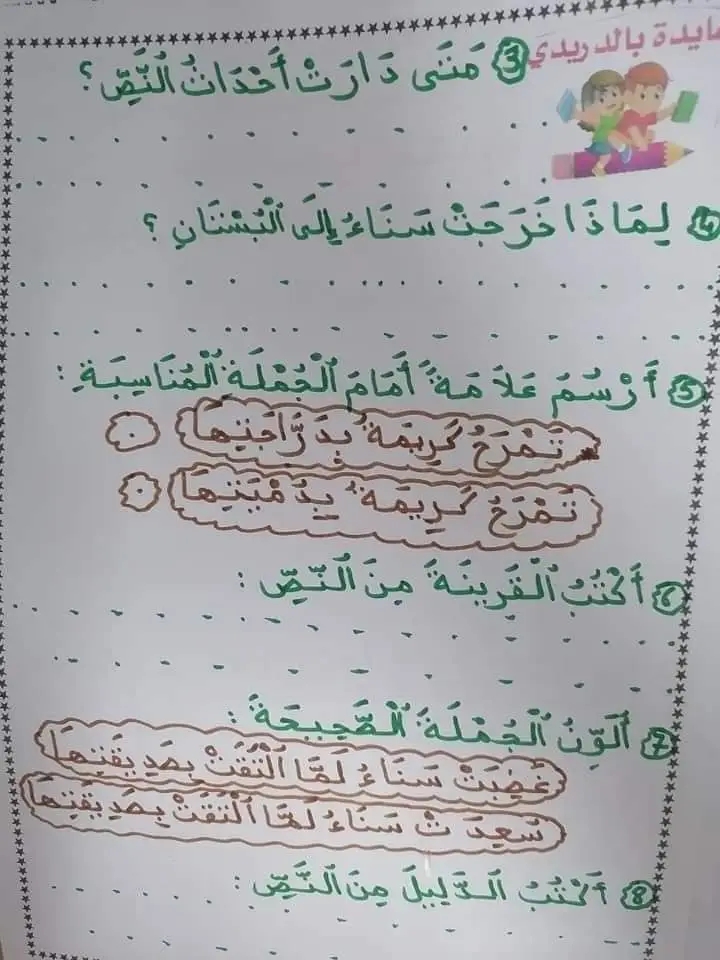 عايدة بالدريدي
3 مَتَى دَارَتْ أَحْدَاثُ النَّصِّ؟
4 لِمَاذَا خَرَجَتْ سَنَاءُ إِلَى الْبُسْتَانِ؟
5 أَرْسُمُ عَلَامَةً أَمَامَ الْجُمْلَةِ الْمُنَاسِبَةِ:
تَمْرَحُ كَرِيمَةُ بِدَرَّاجَتِهَا
تَمْرَحُ كَرِيمَةُ بِدُمْيَتِهَا
6 أَكْتُبُ الْقَرِينَةَ مِنَ النَّصِّ:
7 أُلَوِّنُ الْجُمْلَةَ الصَّحِيحَةَ:
غَضِبَتْ سَنَاءُ لَمَّا الْتَقَتْ بِصَدِيقَتِهَا
سَعِدَتْ سَنَاءُ لَمَّا الْتَقَتْ بِصَدِيقَتِهَا
8 أَكْتُبُ الدَّلِيلَ مِنَ النَّصِّ: